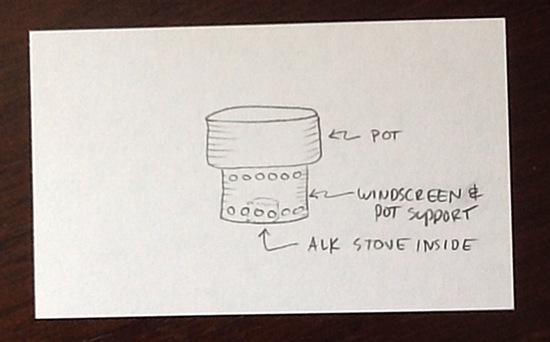 POT
WINDSCREEN &
POT SUPPORT
ALK STOVE INSIDE